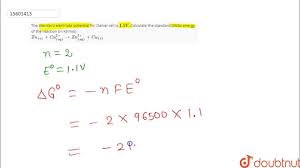 15601413
The standard electrode potential for Daniel cell is 1.1V. Calculate the standard Gibbs energy
of the reaction (in kJ/mol)
Zn(s) + Cu²⁺(aq) → Zn²⁺(aq) + Cu(s)
n = 2
E° = 1.1V
ΔG° = - n F E°
= - 2 × 96500 × 1.1
= - 2
doubtnut